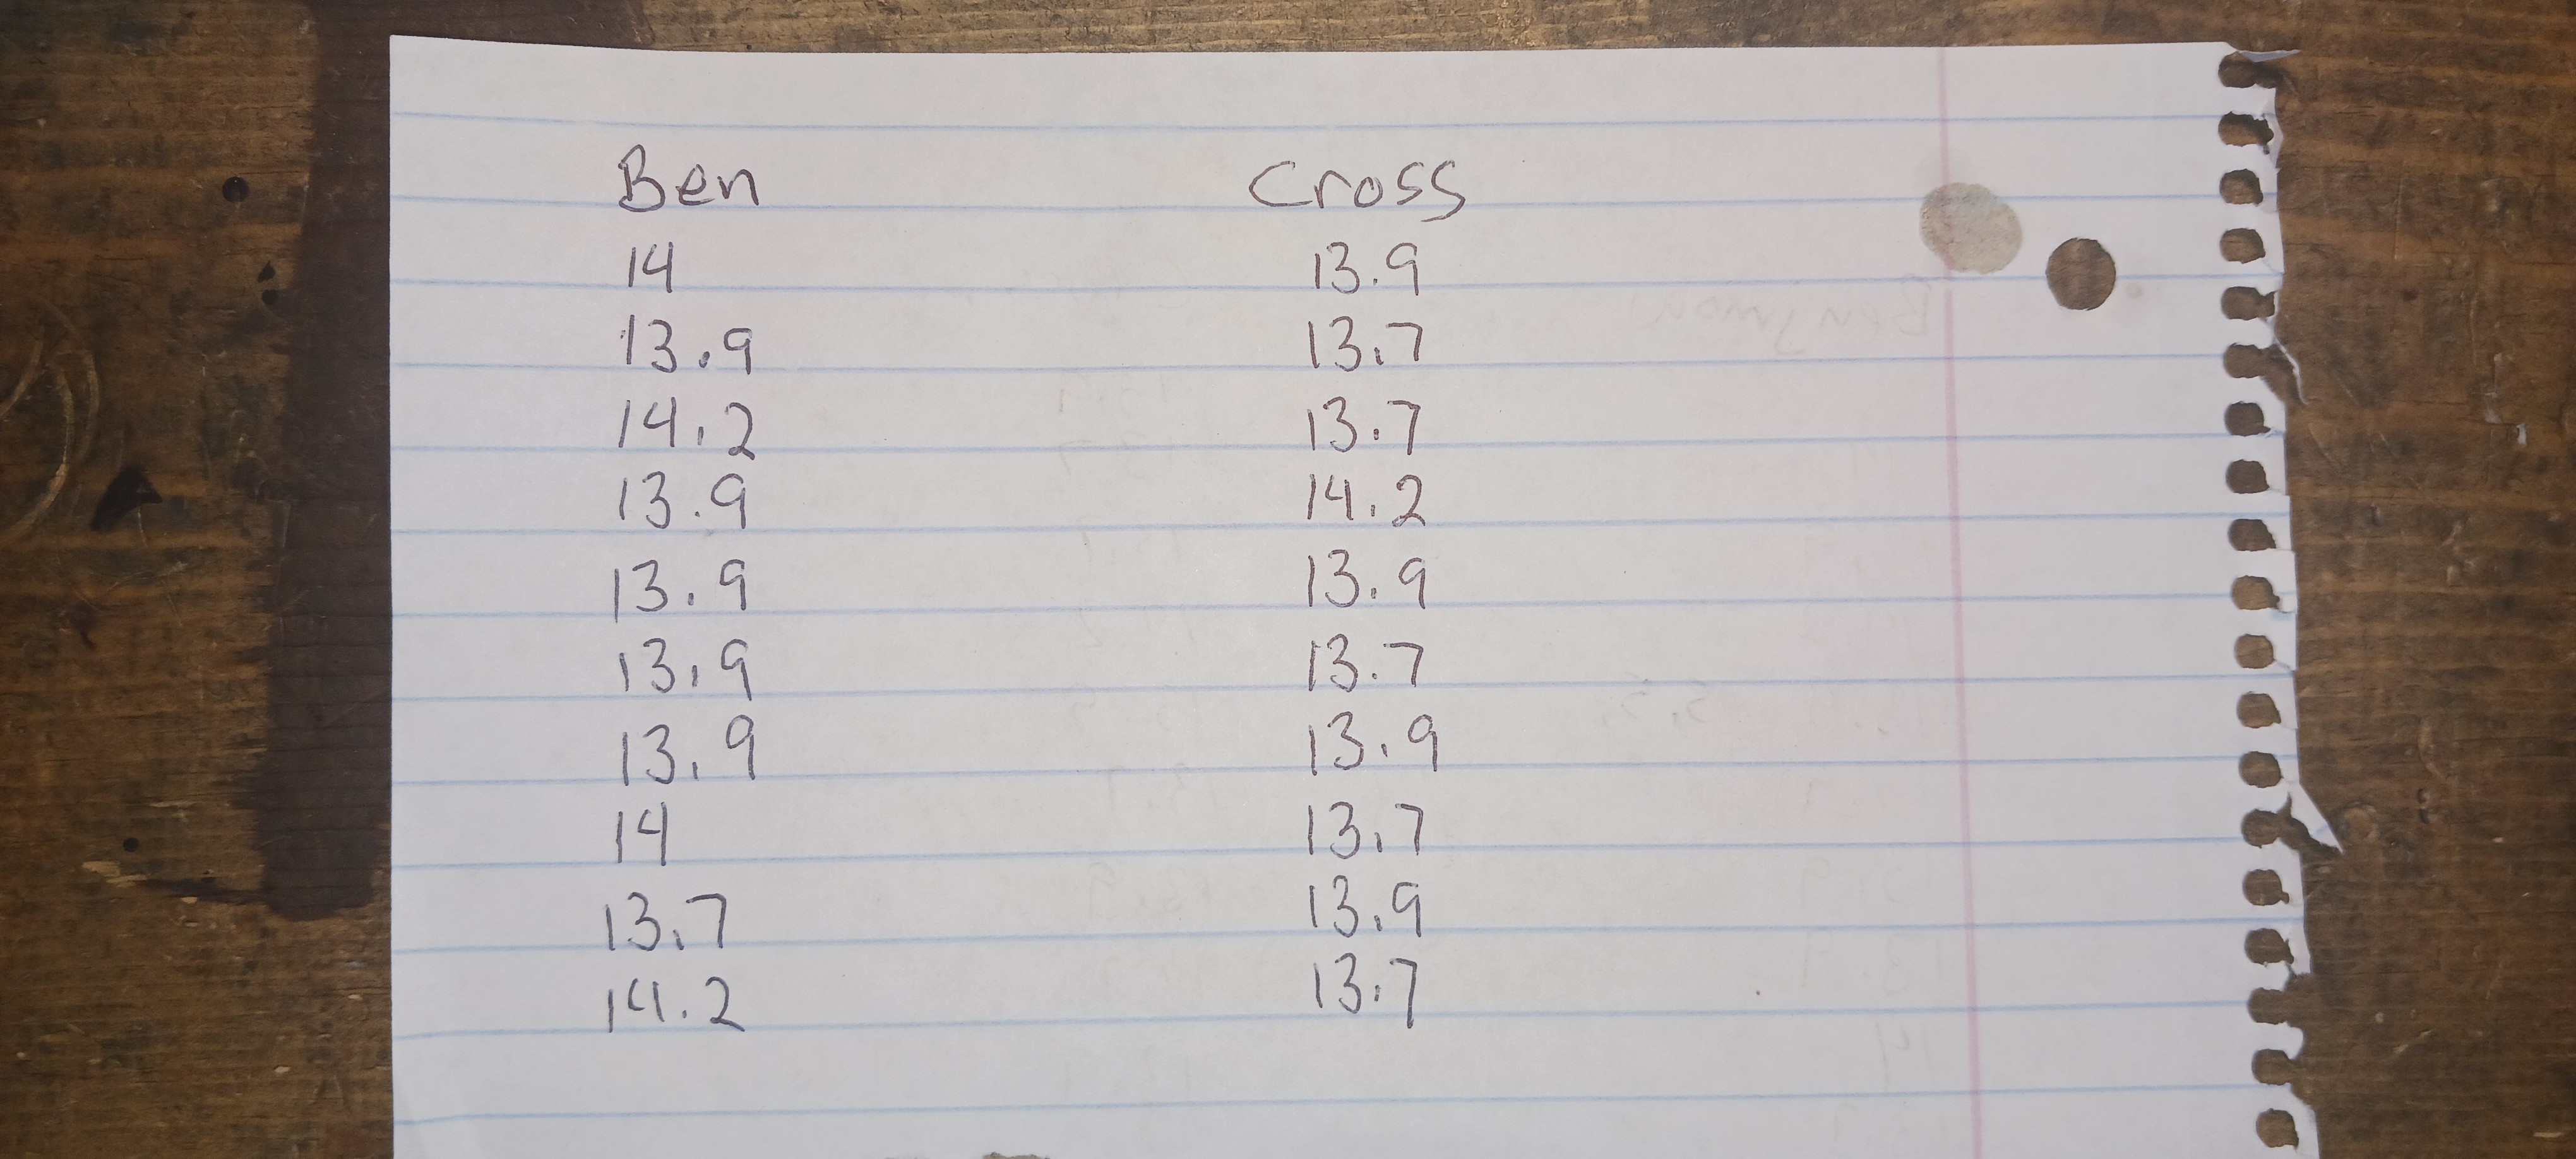 Ben Cross
14 13.9
13.9 13.7
14.2 13.7
13.9 14.2
13.9 13.9
13.9 13.7
13.9 13.9
14 13.7
13.7 13.9
14.2 13.7